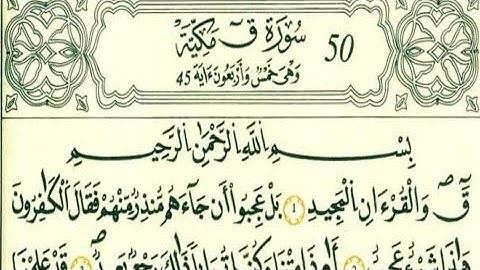 سُورَةُ قٓ مَكِّيَّةٌ 50
وَهِيَ خَمْسٌ وَأَرْبَعُونَ ءَايَةً 45
بِسْمِ اِ۬للَّهِ اِ۬لرَّحْمَٰنِ اِ۬لرَّحِيمِ
قٓ وَالْقُرْءَانِ اِ۬لْمَجِيدِ 1 بَلْ عَجِبُوا أَن جَآءَهُم مُّنذِرٌ مِّنْهُمْ فَقَالَ اَ۬لْكَٰفِرُونَ
هَٰذَا شَےْءٌ عَجِيبٌ 2 أَ۟ذَا مِتْنَا وَكُنَّا تُرَابًا ذَٰلِكَ رَجْعٌ بَعِيدٌ 3 قَدْ عَلِمْنَا